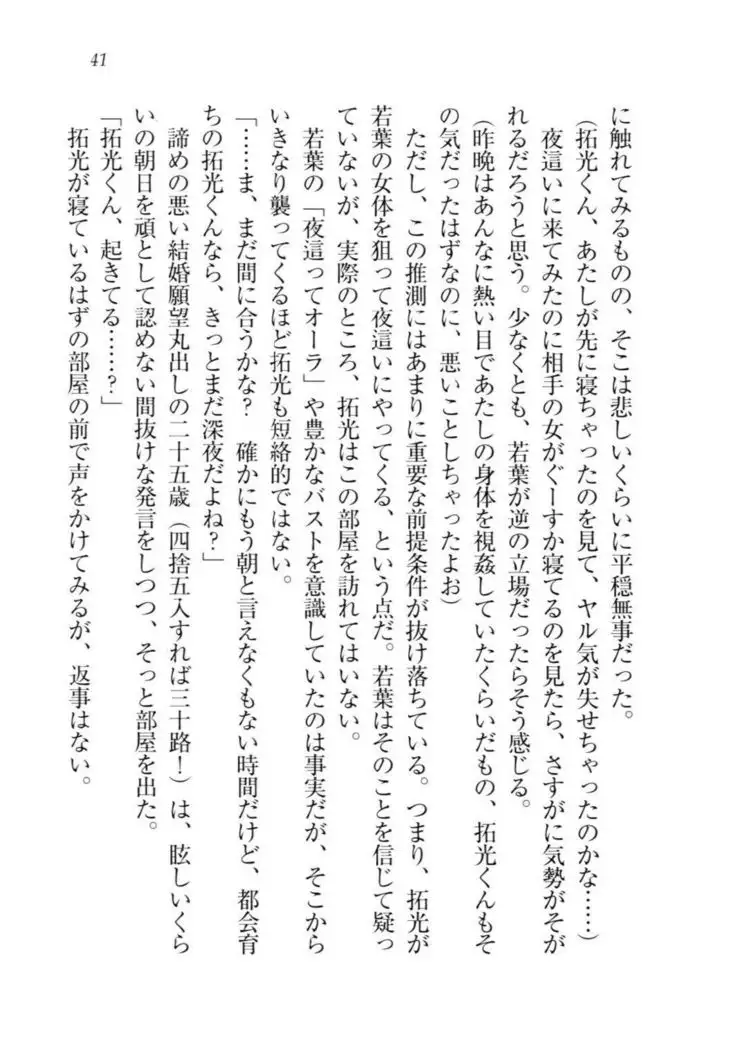 41
に触れてみるものの、そこは悲しいくらいに平穏無事だった。
（拓光くん、あたしが先に寝ちゃったのを見て、ヤル気が失せちゃったのかな……）
夜這いに来てみたのに相手の女がぐーすか寝てるのを見たら、さすがに気勢がそが
れるだろうと思う。少なくとも、若葉が逆の立場だったらそう感じる。
（昨晩はあんなに熱い目であたしの身体を視姦していたくらいだもの、拓光くんもそ
の気だったはずなのに、悪いことしちゃったよお）
ただし、この推測にはあまりに重要な前提条件が抜け落ちている。つまり、拓光が
若葉の女体を狙って夜這いにやってくる、という点だ。若葉はそのことを信じて疑っ
ていないが、実際のところ、拓光はこの部屋を訪れてはいない。
若葉の「夜這ってオーラ」や豊かなバストを意識していたのは事実だが、そこから
いきなり襲ってくるほど拓光も短絡的ではない。
「……ま、まだ間に合うかな？　確かにもう朝と言えなくもない時間だけど、都会育
ちの拓光くんなら、きっとまだ深夜だよね？」
諦めの悪い結婚願望丸出しの二十五歳（四捨五入すれば三十路！）は、眩しいくら
いの朝日を頑として認めない間抜けな発言をしつつ、そっと部屋を出た。
「拓光くん、起きてる……？」
拓光が寝ているはずの部屋の前で声をかけてみるが、返事はない。